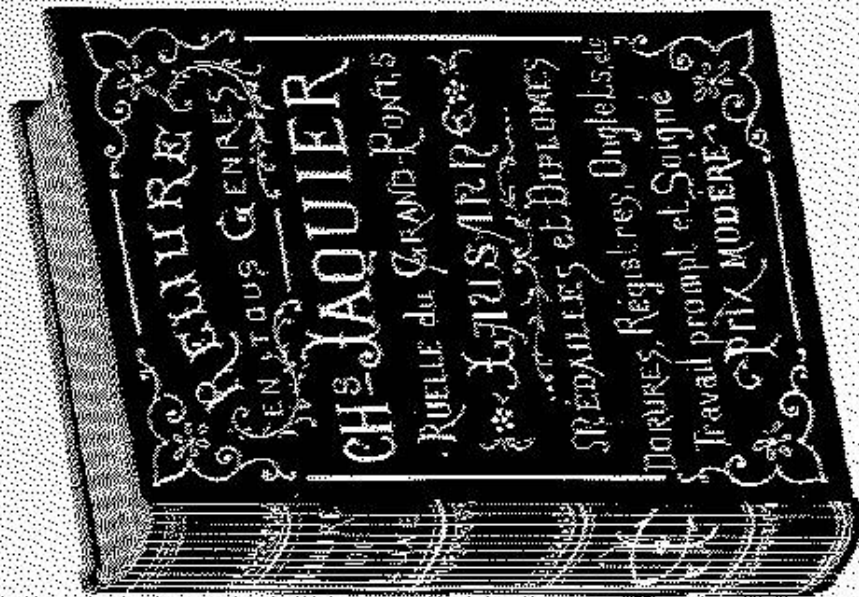 RELIURE
EN TOUS GENRES
CHS JAQUIER
RUELLE du GRAND-PONT, 5
LAUSANNE
MEDAILLES et DIPLOMES
DORURES, Régistres, Onglets, &c
Travail prompt et Soigné
PRIX MODERÉ